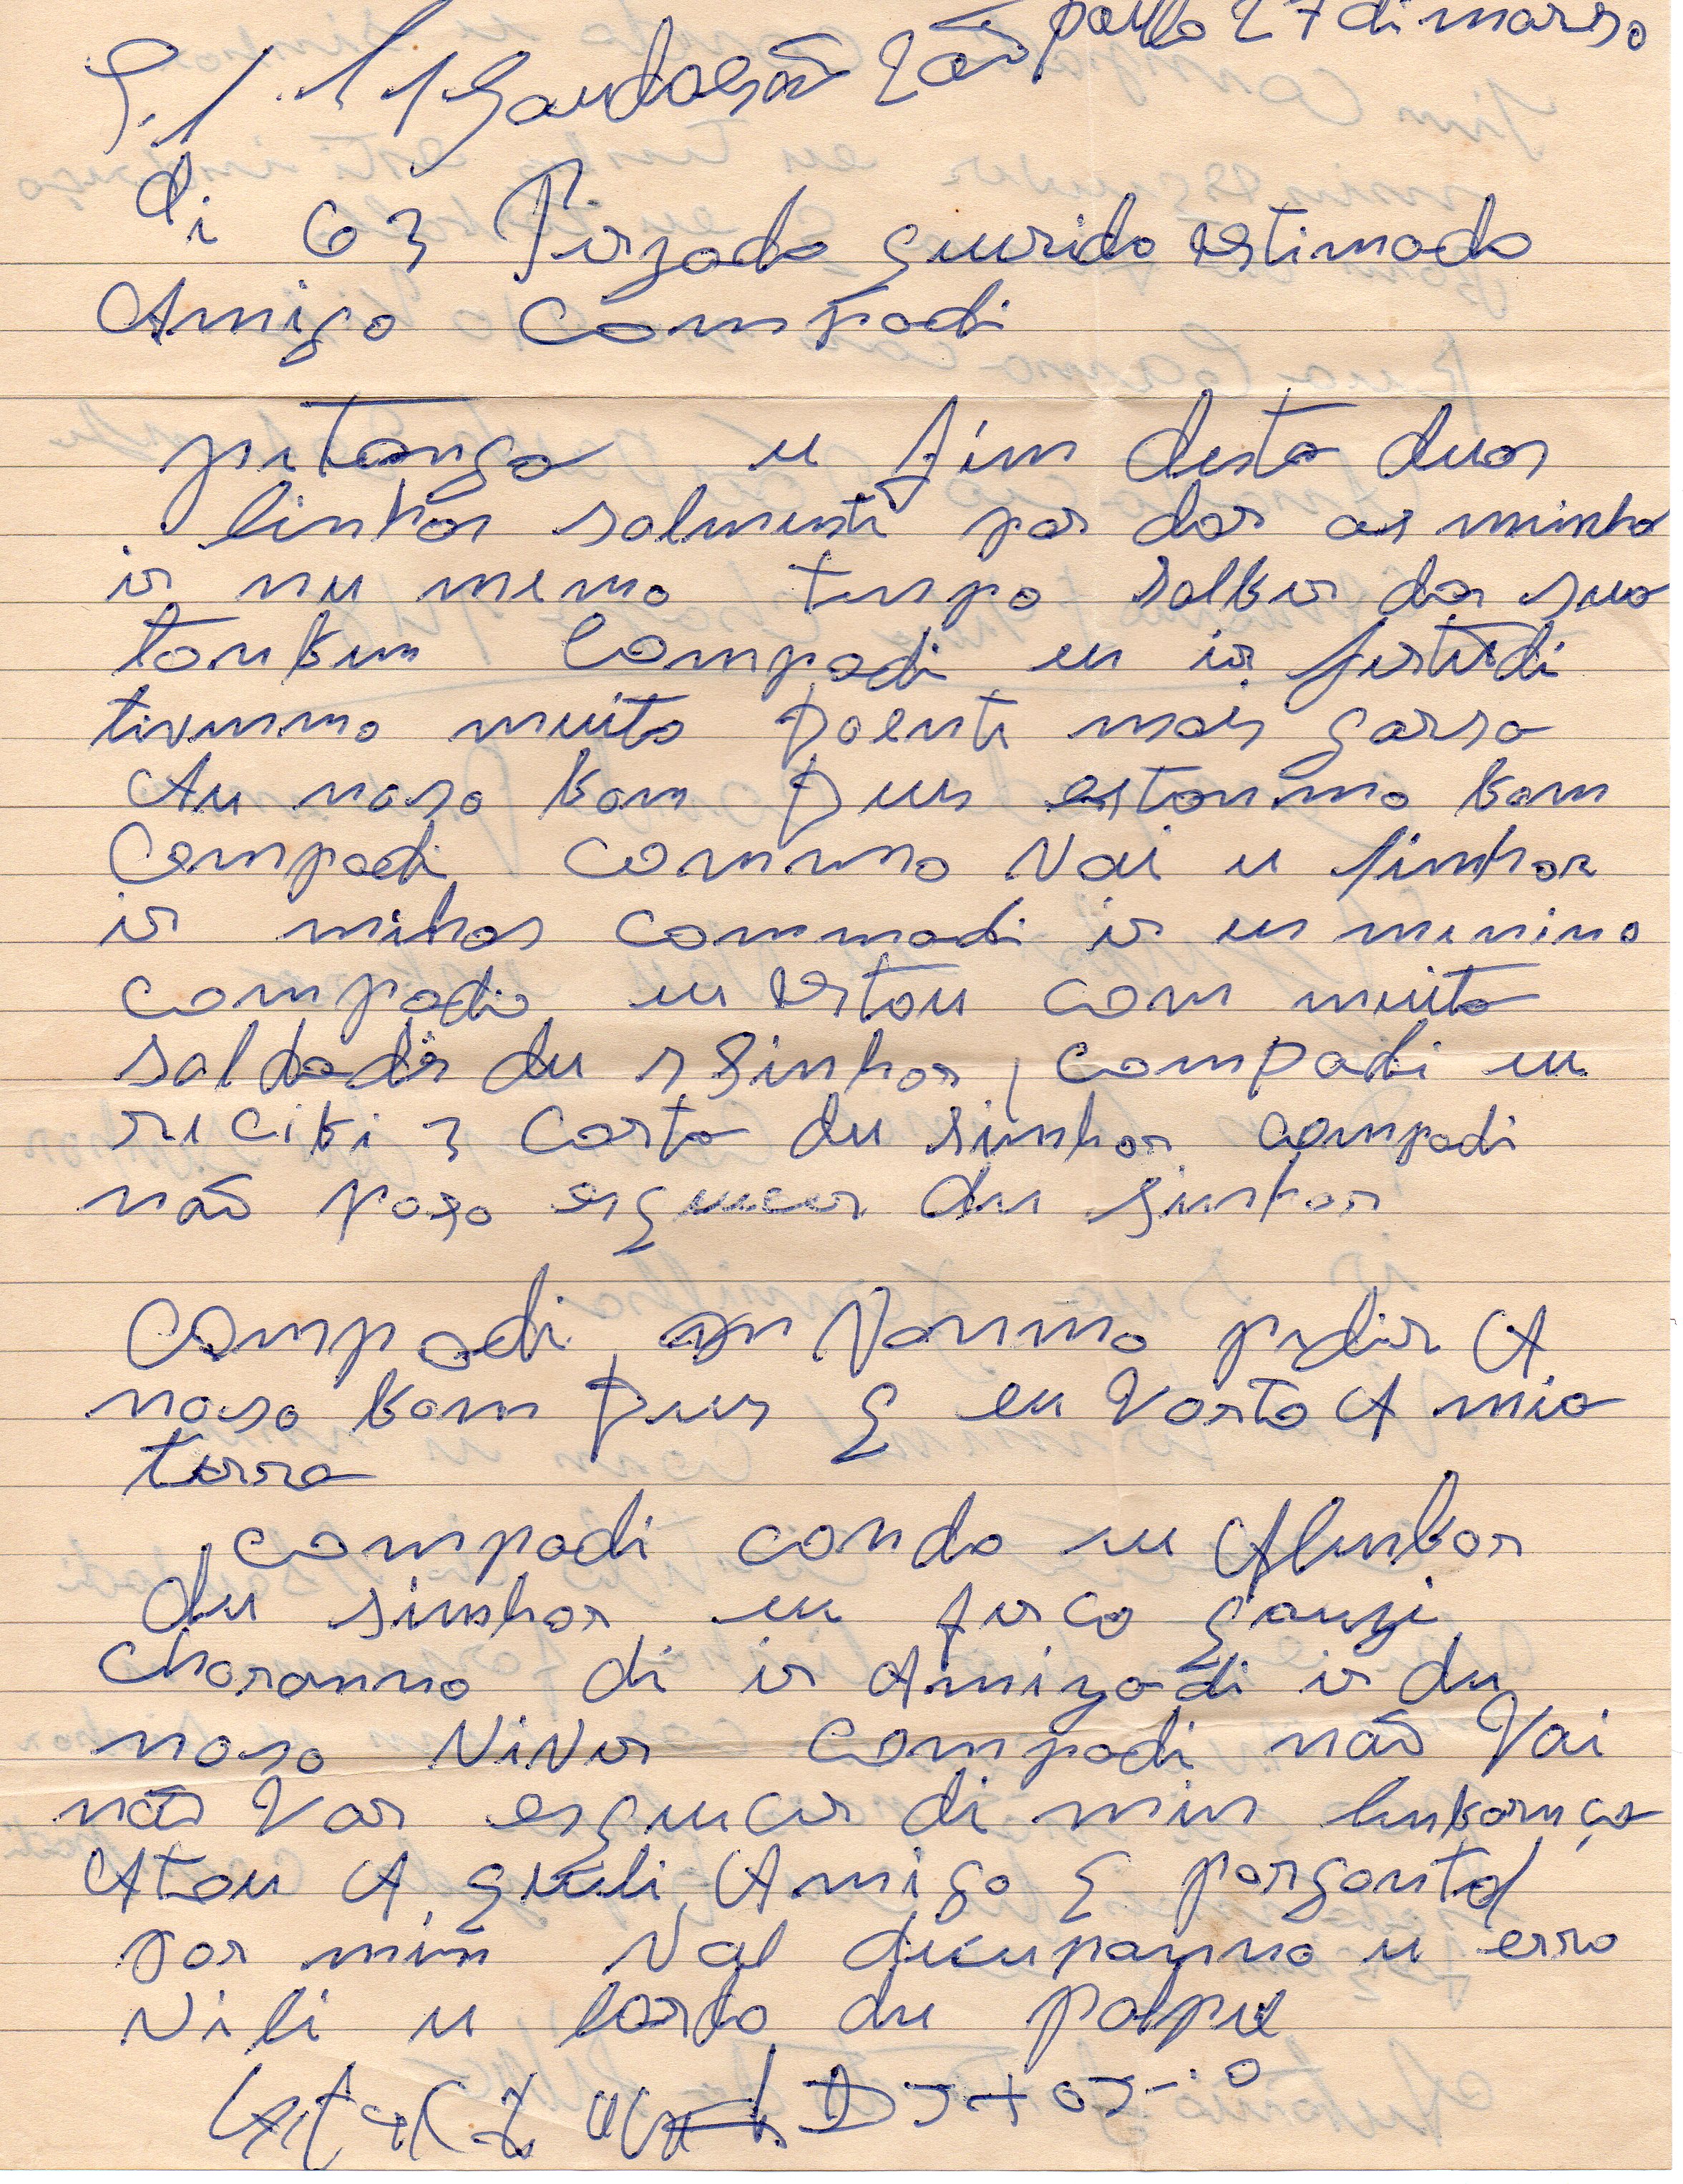 Saudasão São paullo 27 di marso
di 63 Pirzado querido estimado
Amigo Compadi
pitanga u fim desta duas
linhas salmenti par dar as minha
ir nu memo tenpo salber das sua
tonbem Compadi eu ir
tivemmo muito Doenti mais garsa
Au noso bom Deus estanmo bom
Compadi commo Vai u sinhor
ir mihas commadi ir us menino
compadi eu estou com muita
saldadi du Sinhor, compadi eu
recibi 3 carta du sinhor compadi
não poso esquecer du sinhor
Compadi Vanmo pedir A
noso bom Deus q eu Vorta A mia
terra
compadi condo eu Alenbor
du sinhor eu ficо quazi
choranno di ir Amizadi ir du
noso ViVer Compadi não Vai
não Var esquecer di min
Atou A queli Amigo q porgontal
por mim Val dicupanno u erro
Nili u lardo du palpel